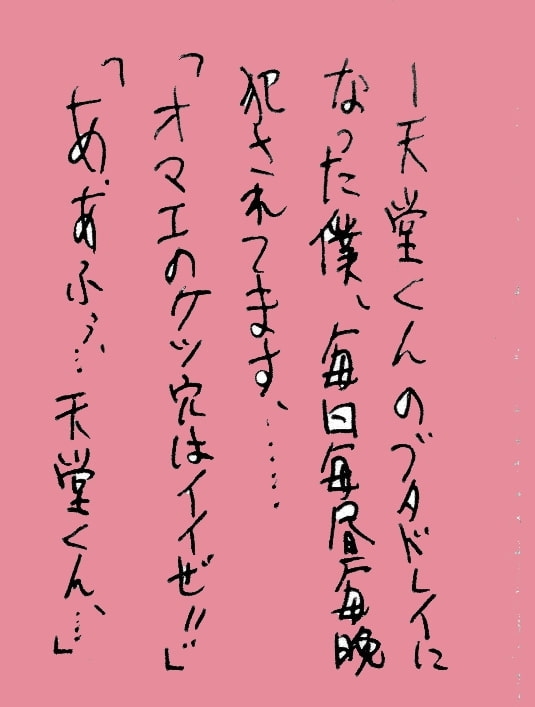 ー天堂くんのブタドレイに
なった僕、毎日毎昼毎晩
犯されてます、……
「オマエのケツ穴はイイぜ!!」
「あ、あふぅ、…天堂くん、…」